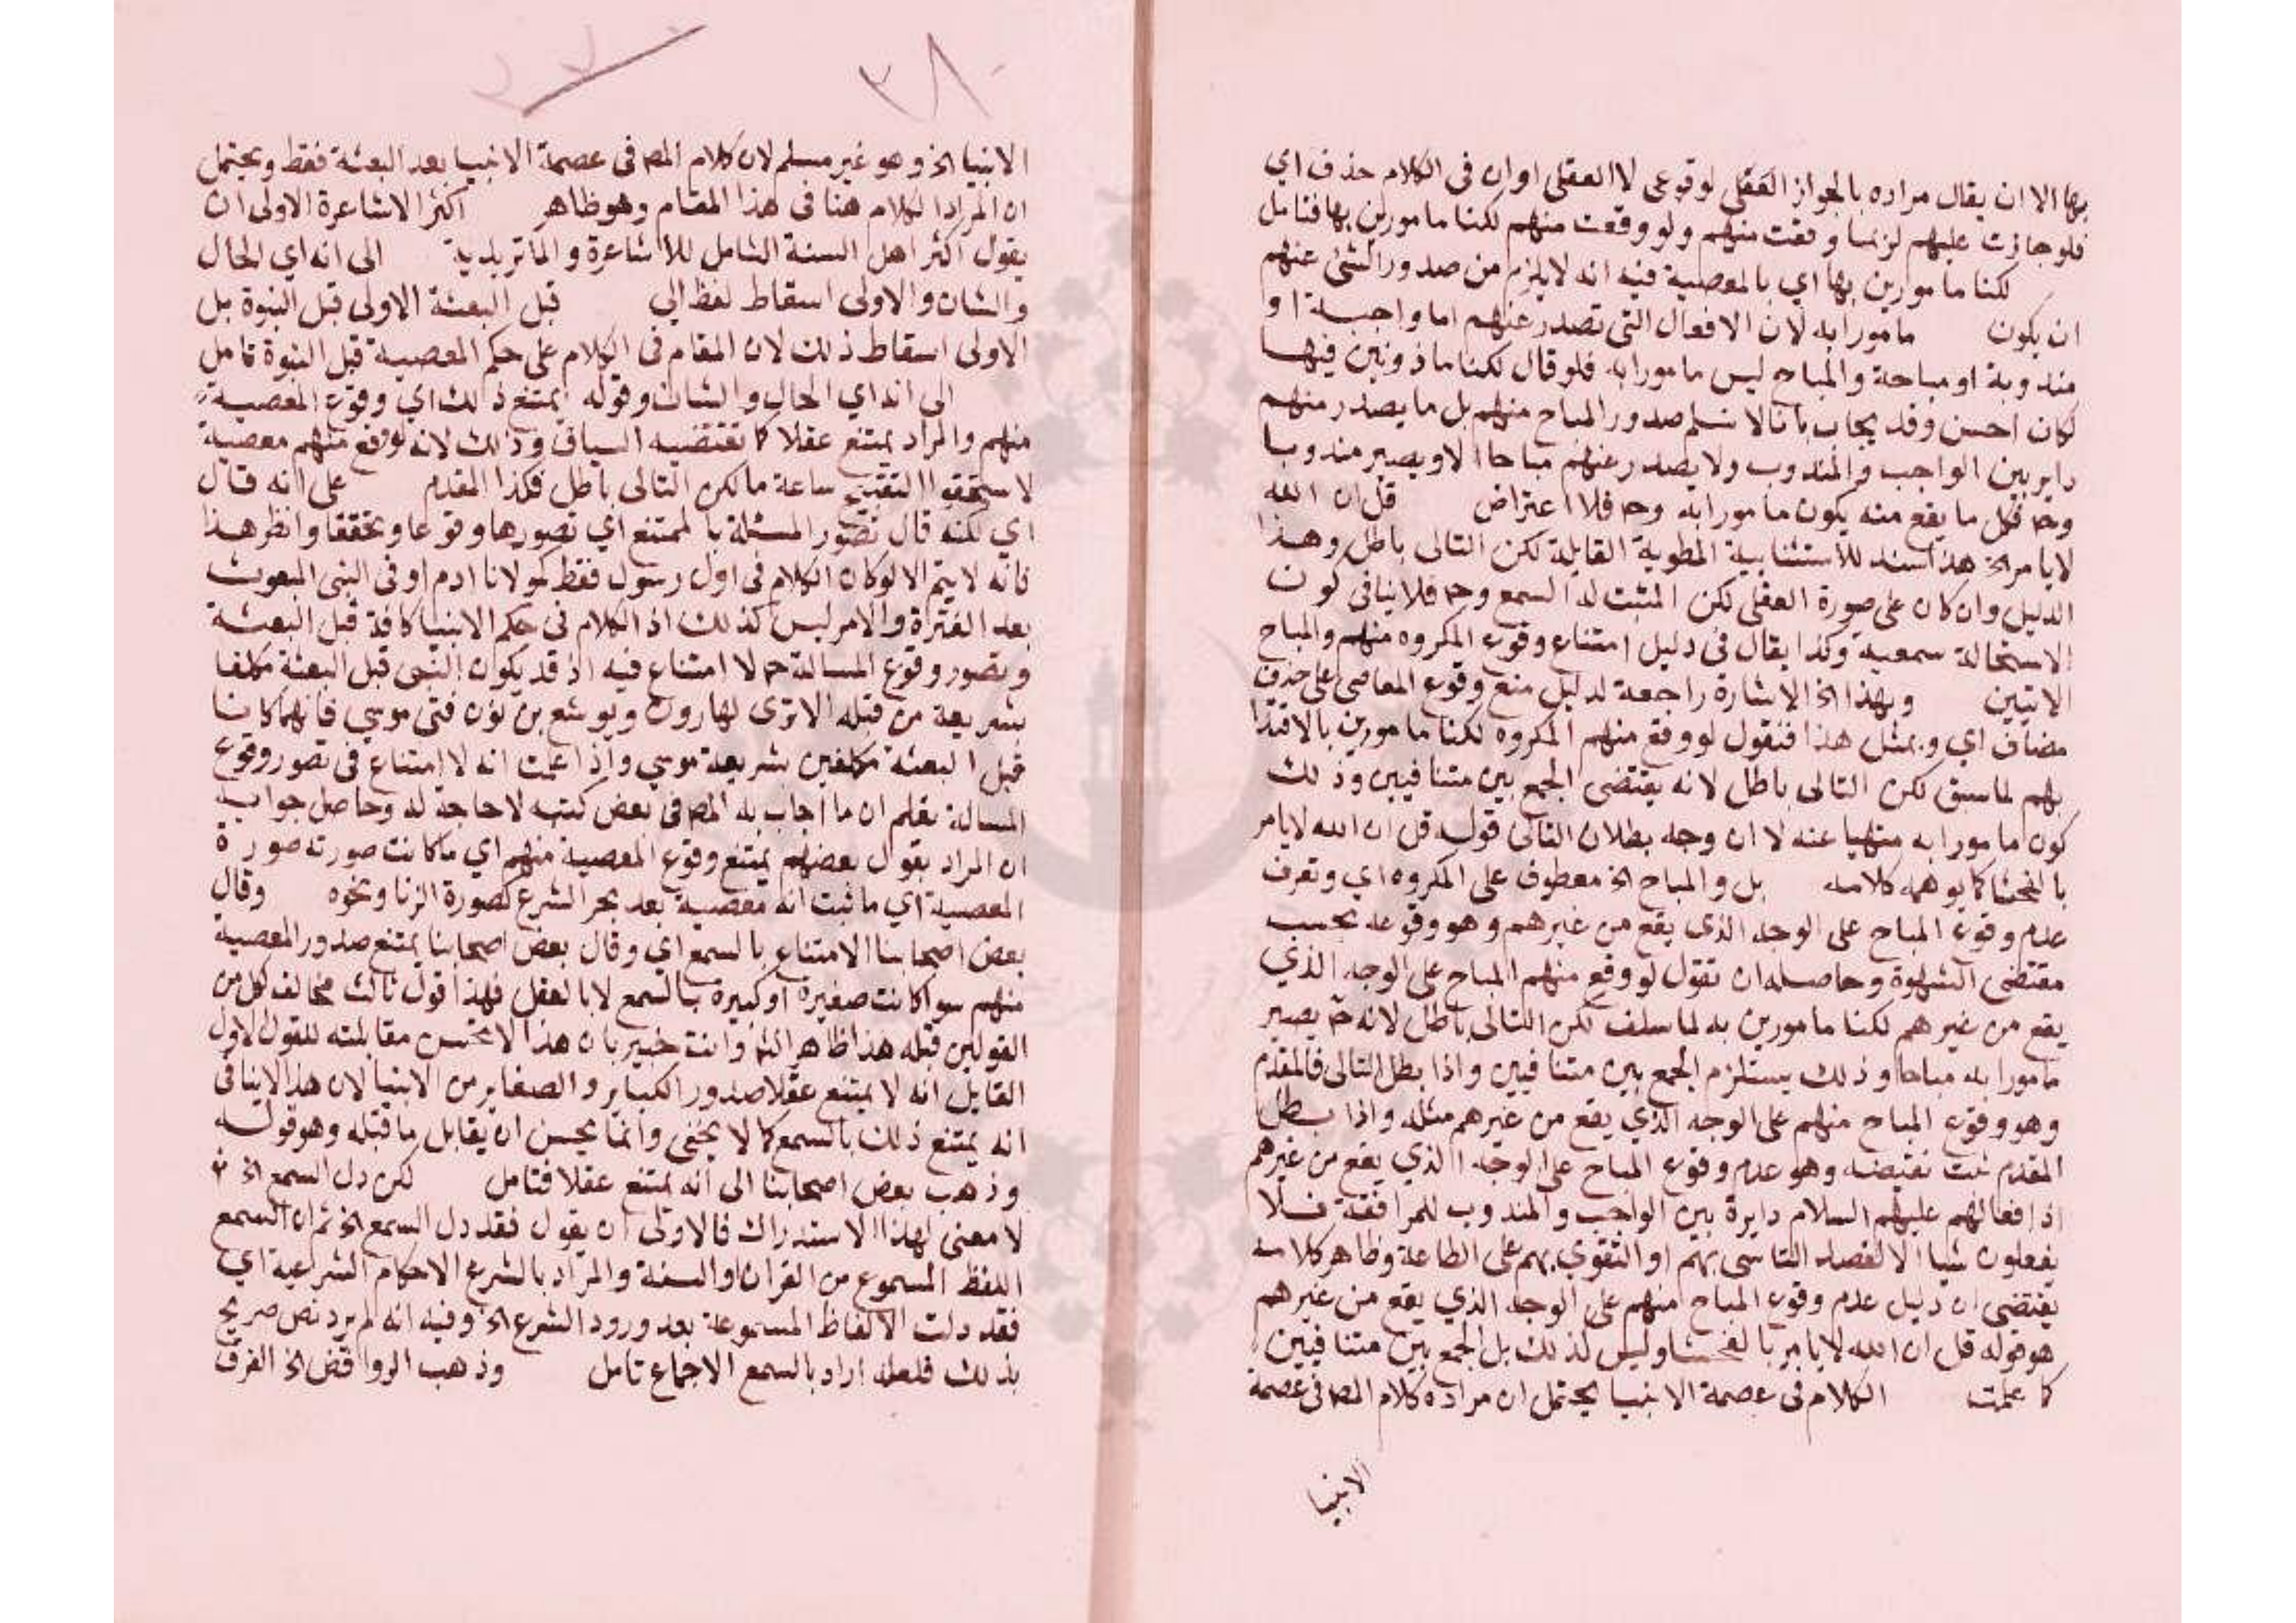 بها الا ان يقال مراده بالجواز العقلي لوقوعي لا العقلي او ان في الكلام حذف اي
فلو جازت عليهم لزبما وقعت منهم ولو وقعت منهم لكنا مامورين بها فتامل
لكنا مامورين بها اي بالمعصية فيه انه لا يلزم من صدور الشئ عنهم
ان يكون مامورا به لان الافعال التي تصدر عنهم اما واجبة او
مندوبة او مباحة والمباح ليس مامورا به فلو قال لكنا ماذونين فيها
لكان احسن وقد يجاب بانا لا نسلم صدور المباح منهم بل ما يصدر منهم
داير بين الواجب والمندوب ولا يصدر عنهم مباحا الا ويصير مندوبا
وح فكل ما يقع منه يكون مامورا به وح فلا اعتراض قل ان الله
لا يامر الخ هذا سند للاستثنايية المطوية القايلة لكن التالى باطل وهذا
الدليل وان كان على صورة العقلي لكن المثبت له السمع وح فلا ينافى كون
الاستحالة سمعية وكذا يقال في دليل امتناع وقوع المكروه منهم والمباح
الاتيين وبهذا الخ الاشارة راجعة لدليل منع وقوع المعاصى على حذف
مضاف اي وبمثل هذا فنقول لو وقع منهم المكروه لكنا مامورين بالاقتدا
بهم لما سبق لكن التالى باطل لانه يقتضى الجمع بين متنافيين وذلك
كون مامورا به منهيا عنه لا ان وجه بطلان التالى قوله قل ان الله لا يامر
بالفحشا كما يوهمه كلامه بل والمباح الخ معطوف على المكروه اي وتعرف
عدم وقوع المباح على الوجه الذى يقع من غيرهم وهو وقوعه بحسب
مقتضى الشهوة وحاصله ان تقول لو وقع منهم المباح على الوجه الذي
يقع من غيرهم لكنا مامورين به لما سلف لكن التالى باطل لانه ح يصير
مامورا به مباحا وذلك يستلزم الجمع بين متنافيين واذا بطل التالى فالمقدم
وهو وقوع المباح منهم على الوجه الذي يقع من غيرهم مثله واذا بطل
المقدم ثبت نقيضه وهو عدم وقوع المباح على الوجه الذي يقع من غيرهم
اذ افعالهم عليهم السلام دايرة بين الواجب والمندوب فلا
يفعلون شيا الا لقصد التاسى بهم او التقوي بهم على الطاعة وظاهر كلامه
يقتضى ان دليل عدم وقوع المباح منهم على الوجه الذي يقع من غيرهم
هو قوله قل ان الله لا يامر بالفحشا وليس كذلك بل الجمع بين متنافيين
كما علمت الكلام في عصمة الانبيا يحتمل ان مراده كلام المص فى عصمة
الانبيا
الانبيا الخ وهو غير مسلم لان كلام المص فى عصمة الانبيا بعد البعثة فقط ويحتمل
ان المراد الكلام هنا فى هذا المقام وهو ظاهر اكثر الاشاعرة الاولى ان
يقول اكثر اهل السنة الشامل للاشاعرة والماتريدية الى انه اي الحال
والشان والاولى اسقاط لفظ الى قبل البعثة الاولى قبل النبوة بل
الاولى اسقاط ذلك لان المقام فى الكلام على حكم المعصية قبل النبوة تامل
الى انه اي الحال والشان وقوله يمتنع ذلك اي وقوع المعصية
منهم والمراد يمتنع عقلا كما يقتضيه السياق وذلك لانه لو وقع منهم معصية
لاستحقوا ساعة ما لكن التالى باطل فكذا المقدم على انه قال
اي لكنه قال تصور المسئلة بالممتنع اي تصورها وقوعا وتحققا وانظر هذا
فانه لا يتم الا لو كان الكلام فى اول رسول فقط كمولانا ادم او فى النبى المبعوث
بعد الفترة والامر ليس كذلك اذ الكلام فى حكم الانبيا كافة قبل البعثة
وتصور وقوع المسالة ح لا امتناع فيه اذ قد يكون النبى قبل البعثة مكلفا
بشريعة من قبله الا ترى لهارون ويوشع بن نون فتى موسي فانهما كانا
قبل البعثة مكلفين بشريعة موسي واذا علمت انه لا امتناع فى تصور وقوع
المسالة تعلم ان ما اجاب به المص فى بعض كتبه لا حاجة له وحاصل جوابه
ان المراد بقول بعضهم يمتنع وقوع المعصية منهم اي ما كانت صورته صورة
المعصية اي ما ثبت انه معصية بعد الشرع كصورة الزنا ونحوه وقال
بعض اصحابنا الامتناع بالسمع اي وقال بعض اصحابنا يمتنع صدور المعصية
منهم سوا كانت صغيرة او كبيرة بالسمع لا بالعقل فهذا قول ثالث مخالف لكل من
القولين قبله هذا ظاهر وانت خبير بان هذا لا تحسن مقابلته للقول الاول
القايل انه لا يمتنع عقلا صدور الكباير والصغاير من الانبيا لان هذا لا ينافى
انه يمتنع ذلك بالسمع كما لا يخفى وانما يحسن ان يقابل ما قبله وهو قوله
وذهب بعض اصحابنا الى انه يمتنع عقلا فتامل لكن دل السمع الخ
لا معنى لهذا الاستدراك فالاولى ان يقول فقد دل السمع الخ ثم ان السمع
اللفظ المسموع من القران والسنة والمراد بالشرع الاحكام الشرعية اي
فقد دلت الالفاظ المسموعة بعد ورود الشرع الخ وفيه انه لم يرد نص صريح
بذلك فلعله اراد بالسمع الاجماع تامل وذهب الروافض الخ الفرق